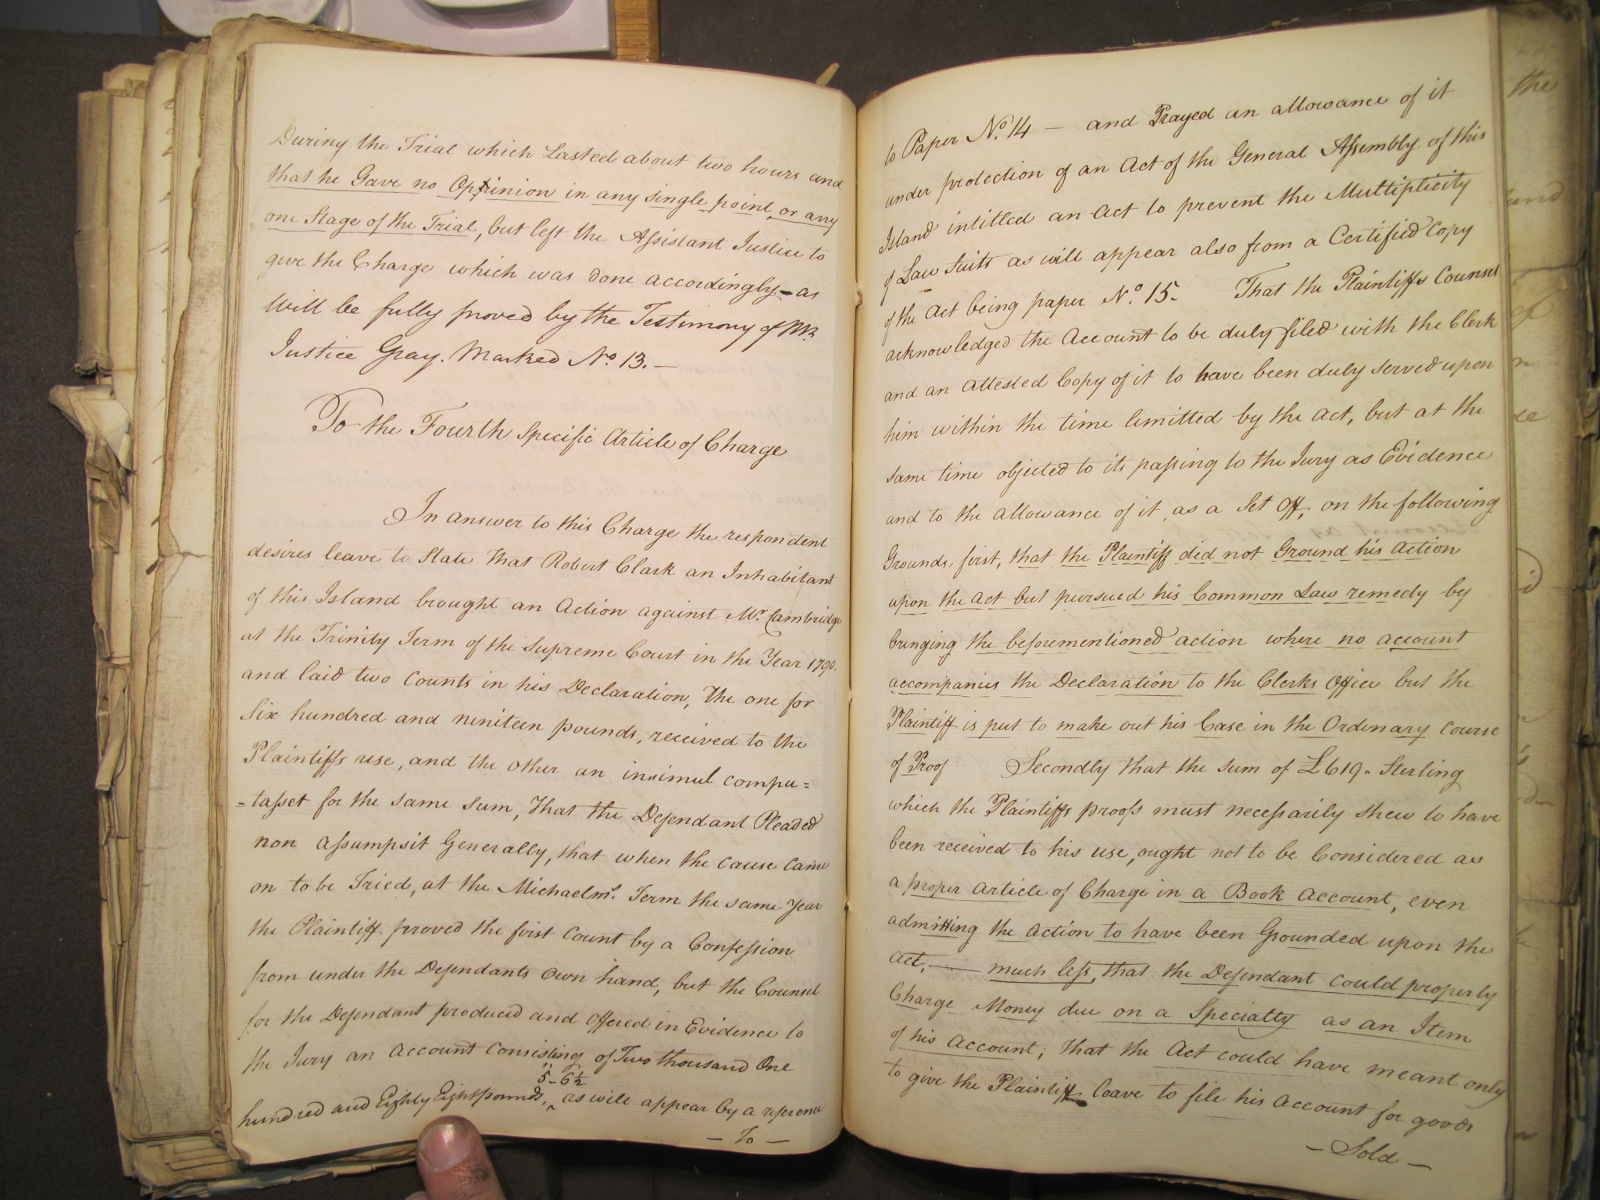 During the Trial which Lasted about two hours and
that he Gave no Oppinion in any single point, or any
one Stage of the Trial, but left the Assistant Justice to
give the Charge which was done accordingly - as
Will be fully proved by the Testimony of Mr.
Justice Gray. Marked No. 13. —
To the Fourth Specific Article of Charge
In answer to this Charge the respondent
desires leave to State that Robert Clark an Inhabitant
of this Island brought an Action against Mr. Cambridge
at the Trinity Term of the Supreme Court in the Year 1790.
and laid two Counts in his Declaration, the one for
Six hundred and nineteen pounds, received to the
Plaintiffs use, and the other an insimul compu=
=tasset for the same sum, that the Defendant Pleaded
non assumpsit Generally, that when the cause came
on to be Tried, at the Michaelms. Term the same Year
the Plaintiff proved the first Count by a Confession
from under the Defendants own hand, but the Counsel
for the Defendant produced and offered in Evidence to
the Jury an account Consisting of Two thousand One
5 - 6½
hundred and Eighty Eight pounds, ^ as will appear by a reference
— To —
to Paper No. 14 — and Prayed an allowance of it
under protection of an Act of the General Assembly of this
Island intitled an Act to prevent the Multiplicity
of Law Suits as will appear also from a Certified Copy
of the Act being paper No. 15. That the Plaintiffs Counsel
acknowledged the Account to be duly filed with the Clerk
and an attested Copy of it to have been duly served upon
him within the time limitted by the Act, but at the
same time objected to its passing to the Jury as Evidence
and to the allowance of it, as a Set Off, on the following
Grounds, first, that the Plaintiff did not Ground his Action
upon the act but pursued his Common Law remedy by
bringing the beforementioned action where no account
accompanies the Declaration to the Clerks Office but the
Plaintiff is put to make out his Case in the Ordinary Course
of Proof Secondly that the sum of £619. Sterling
which the Plaintiffs proofs must necessarily shew to have
been received to his use, ought not to be Considered as
a proper Article of Charge in a Book Account, even
admitting the Action to have been Grounded upon the
act, — much less, that the Defendant could properly
Charge Money due on a Specialty as an Item
of his account; that the Act could have meant only
to give the Plaintiff leave to file his Account for goods
— Sold —
the